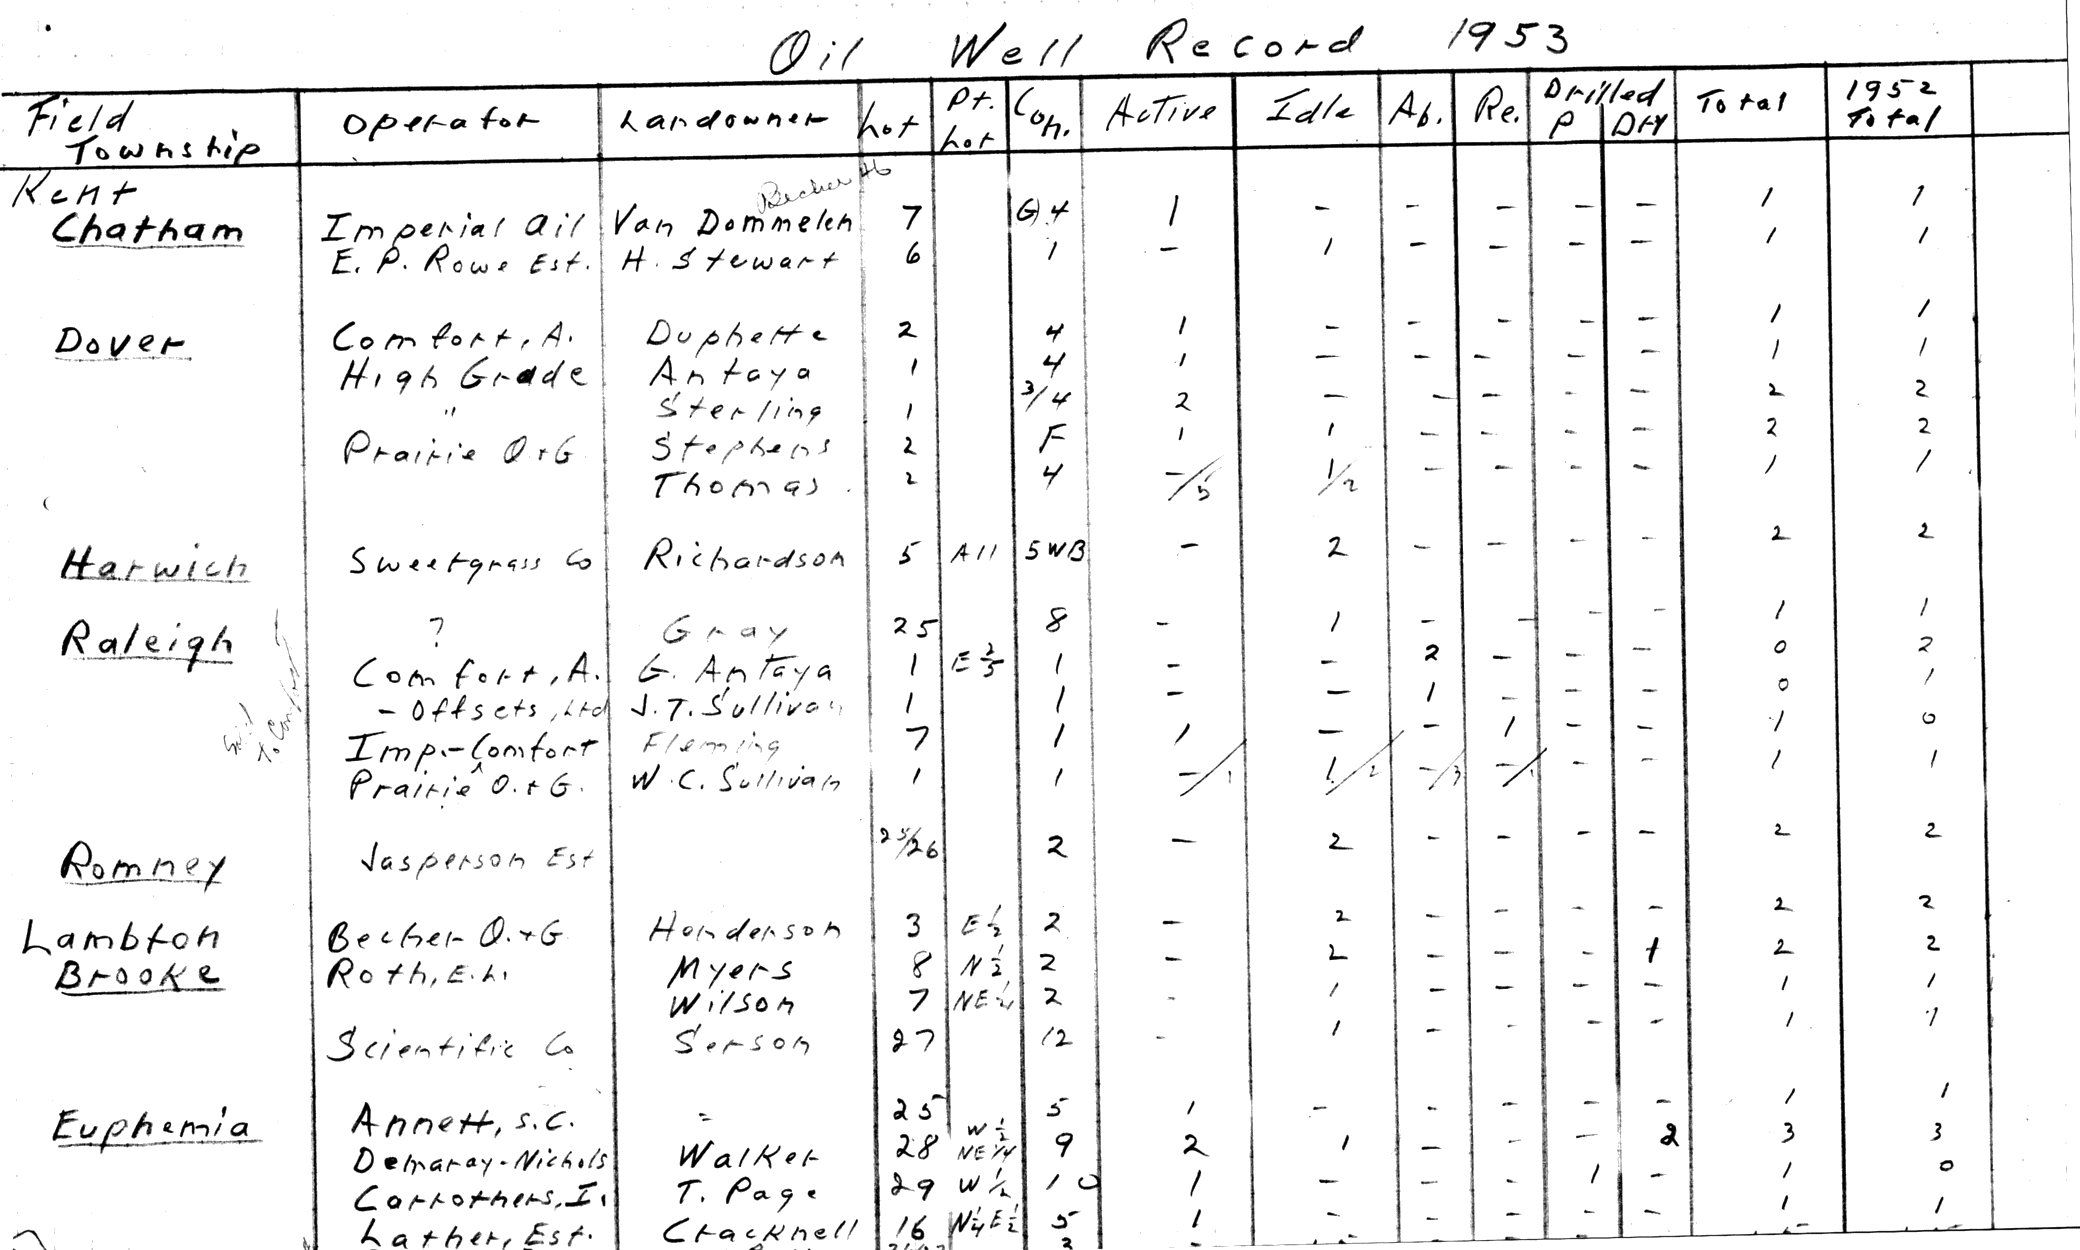 Oil Well Record 1953
Field Township Operator Landowner Lot Pt. Lot Con. Active Idle Ab. Re. Drilled P Dry Total 1952 Total
Kent
Becher
Chatham Imperial Oil Van Dommelen 7 G 4 1 - - - - - 1 1
E. P. Rowe Est. H. Stewart 6 1 - 1 - - - - 1 1
Dover Comfort, A. Duphette 2 4 1 - - - - - 1 1
High Grade Antaya 1 4 1 - - - - - 1 1
" Sterling 1 3/4 2 - - - - - 2 2
Prairie O + G Stephens 2 F 1 1 - - - - 2 2
Thomas 2 4 -/5 1/2 - - - - 1 1
Harwich Sweetgrass Co Richardson 5 All 5WB - 2 - - - - 2 2
Raleigh ? Gray 25 8 - 1 - - - - 1 1
Comfort, A. G. Antaya 1 E 2/5 1 - - 2 - - - 0 2
- Offsets, Ltd J. T. Sullivan 1 1 - - 1 - - - 0 1
Sold To Comfort
Imp.-Comfort Fleming 7 1 1 - - 1 - - 1 0
Prairie O. + G. W. C. Sullivan 1 1 -/1 1/2 -/3 -/1 - - 1 1
Romney Jasperson Est 25/26 2 - 2 - - - - 2 2
Lambton Becher O. + G Henderson 3 E 1/2 2 - 2 - - - - 2 2
Brooke Roth, E. L. Myers 8 N 1/2 2 - 2 - - - 1 2 2
Wilson 7 NE 1/4 2 - 1 - - - - 1 1
Scientific Co Serson 27 12 - 1 - - - - 1 1
Euphemia Annett, S. C. = 25 5 1 - - - - - 1 1
Demaray-Nichols Walker 28 W 1/2 NE 1/4 9 2 1 - - - 2 3 3
Carrothers, I. T. Page 29 W 1/2 10 1 - - - 1 - 1 0
Lather, Est. Cracknell 16 N 1/4 E 1/2 5 1 - - - - - 1 1